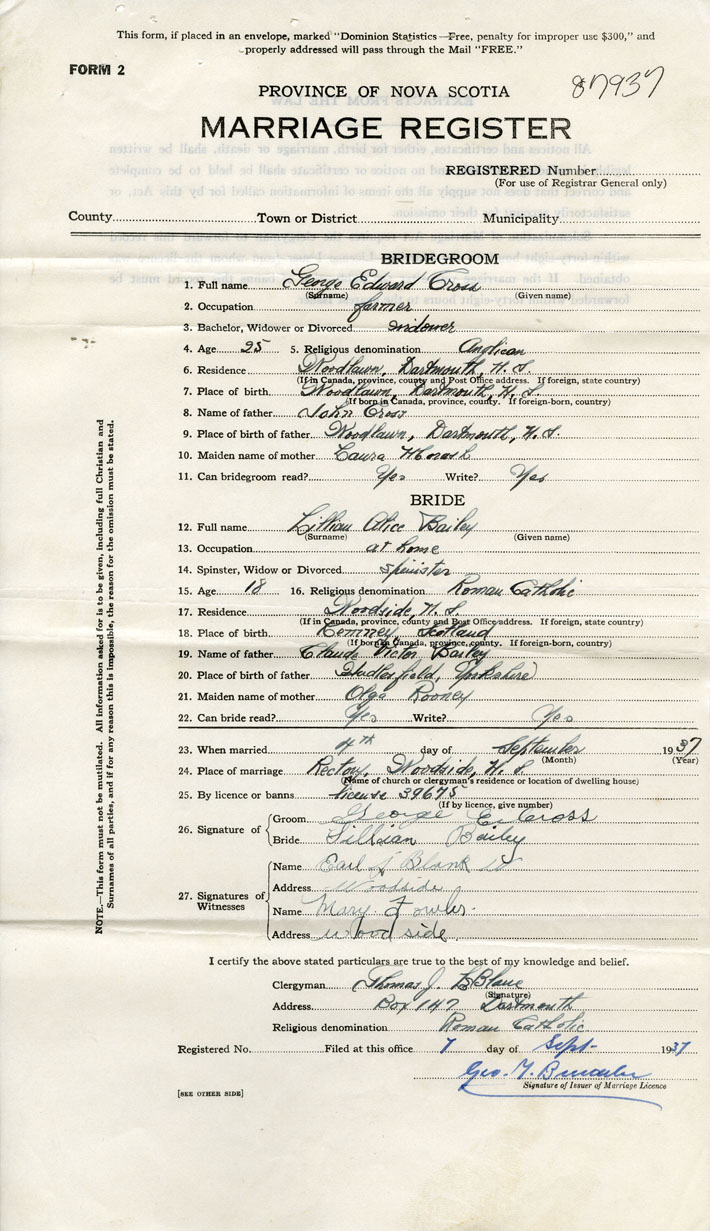 This form, if placed in an envelope, marked "Dominion Statistics—Free, penalty for improper use $300," and
properly addressed will pass through the Mail "FREE."
FORM 2
PROVINCE OF NOVA SCOTIA
87937
MARRIAGE REGISTER
REGISTERED Number
(For use of Registrar General only)
County Town or District Municipality
BRIDEGROOM
1. Full name George Edward Cross
(Surname) (Given name)
2. Occupation farmer
3. Bachelor, Widower or Divorced widower
4. Age 25 5. Religious denomination Anglican
6. Residence Woodlawn, Dartmouth, N.S.
(If in Canada, province, county and Post Office address. If foreign, state country)
7. Place of birth Woodlawn, Dartmouth, N.S.
(If born in Canada, province, county. If foreign-born, country)
8. Name of father John Cross
9. Place of birth of father Woodlawn, Dartmouth, N.S.
10. Maiden name of mother Laura
11. Can bridegroom read? Yes Write? Yes
BRIDE
12. Full name Lillian Alice Bailey
(Surname) (Given name)
13. Occupation at home
14. Spinster, Widow or Divorced spinster
15. Age 18 16. Religious denomination Roman Catholic
17. Residence Woodside, N.S.
(If in Canada, province, county and Post Office address. If foreign, state country)
18. Place of birth Kemney, Scotland
(If born in Canada, province, county. If foreign-born, country)
19. Name of father Claude Victor Bailey
20. Place of birth of father Hudlerfield, Yorkshire
21. Maiden name of mother Olga Rooney
22. Can bride read? Yes Write? Yes
23. When married 4th day of September 1937
(Month) (Year)
24. Place of marriage Rectory, Woodside, N.S
(Name of church or clergyman's residence or location of dwelling house)
25. By licence or banns license 39675
(If by licence, give number)
26. Signature of
Groom George E. Cross
Bride Lillian Bailey
27. Signatures of Witnesses
Name Earl J Blank
Address Woodside
Name Mary Fowler
Address Woodside
I certify the above stated particulars are true to the best of my knowledge and belief.
Clergyman Thomas J. LeBlanc
(Signature)
Address Box 147 Dartmouth
Religious denomination Roman Catholic
Registered No. Filed at this office 7 day of Sept- 1937
Geo. Y.
Signature of Issuer of Marriage Licence
[SEE OTHER SIDE]
NOTE.—This form must not be mutilated. All information asked for is to be given, including full Christian and
Surnames of all parties, and if for any reason this is impossible, the reason for the omission must be stated.